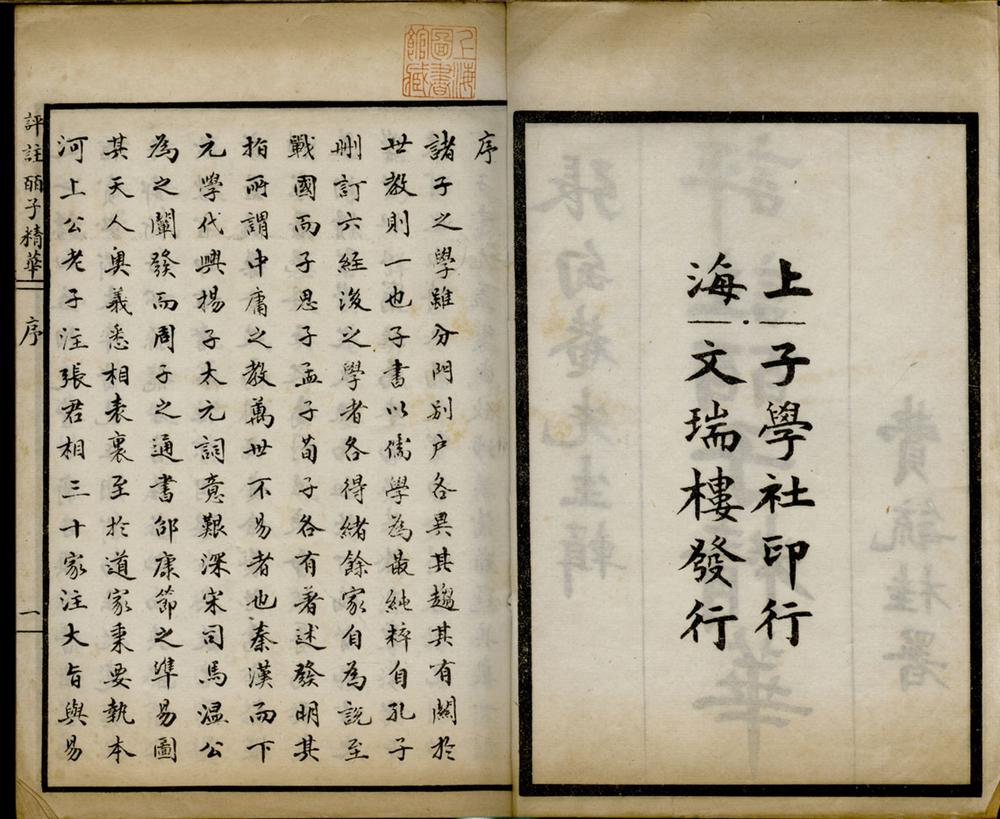 上子學社印行
海文瑞樓發行
上海
圖書
館藏
序
諸子之學雖分門別户各異其趨其有關於
世教則一也子書以儒學為最純粹自孔子
刪訂六經後之學者各得緒餘家自為說至
戰國而子思子孟子荀子各有著述發明其
指所謂中庸之教萬世不易者也秦漢而下
元學代興揚子太元詞意艱深宋司馬溫公
為之闡發而周子之通書邵康節之準易圖
其天人奧義悉相表裏至於道家秉要執本
河上公老子注張君相三十家注大旨與易
評註百子精華
序
一